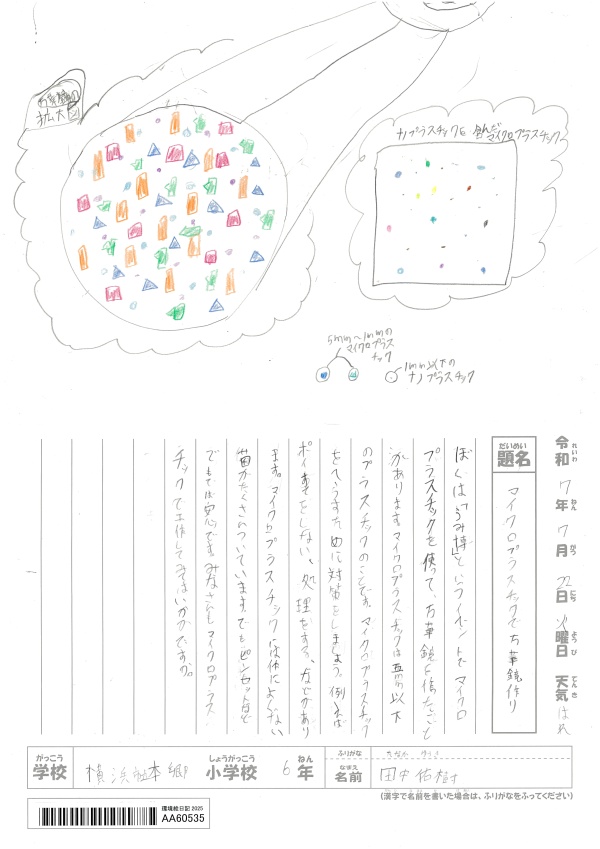 万華鏡の
拡大図
ナノプラスチックも含んだ
マイクロプラスチック
5mm〜1mmの
マイクロプラス
チック
1mm以下の
ナノプラスチック
令和7年7月22日火曜日 天気 はれ
れいわ ねん がつ にち ようび てんき
だいめい
題名
マイクロプラスチックで万華鏡作り
ぼくは「うみ博」というイベントでマイクロ
プラスチックを使って、万華鏡を作ったこと
があります。マイクロプラスチックは五mm以下
のプラスチックのことです。マイクロプラスチック
をへらすために対策をしましょう。例えば
ポイ捨てをしない、処理をする、などがあり
ます。マイクロプラスチックには体によくない
菌がたくさんついています。でもピンセットなど
でもてば安心です。みなさんもマイクロプラス
チックで工作してみてはいかがですか。
がっこう
学校
横浜市立本郷
しょうがっこう
小学校
6
ねん
年
ふりがな
たなか ゆうき
なまえ
名前
田中佑樹
(漢字で名前を書いた場合は、ふりがなをふってください)
環境絵日記 2025
AA60535